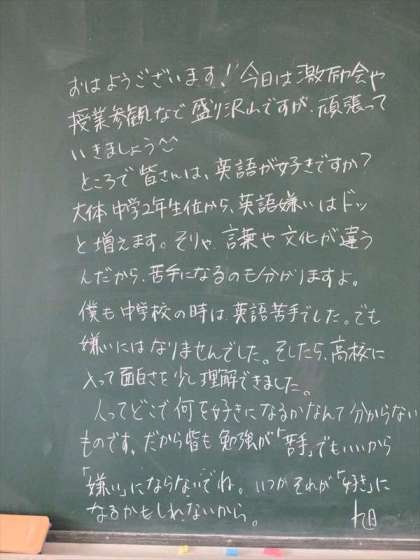 おはようございます!今日は激励会や
授業参観など盛り沢山ですが、頑張って
いきましょう
ところで皆さんは、英語が好きですか?
大体中学2年生位から、英語嫌いはドッ
と増えます。そりゃ、言葉や文化が違う
んだから、苦手になるのも分かりますよ。
僕も中学校の時は、英語苦手でした。でも
嫌いにはなりませんでした。そしたら、高校に
入って面白さを少し理解できました。
人ってどこで何を好きになるかなんて分からない
ものです。だから皆も勉強が「苦手」でもいいから
「嫌い」にならないでね。いつかそれが「好き」に
なるかもしれないから。 旭